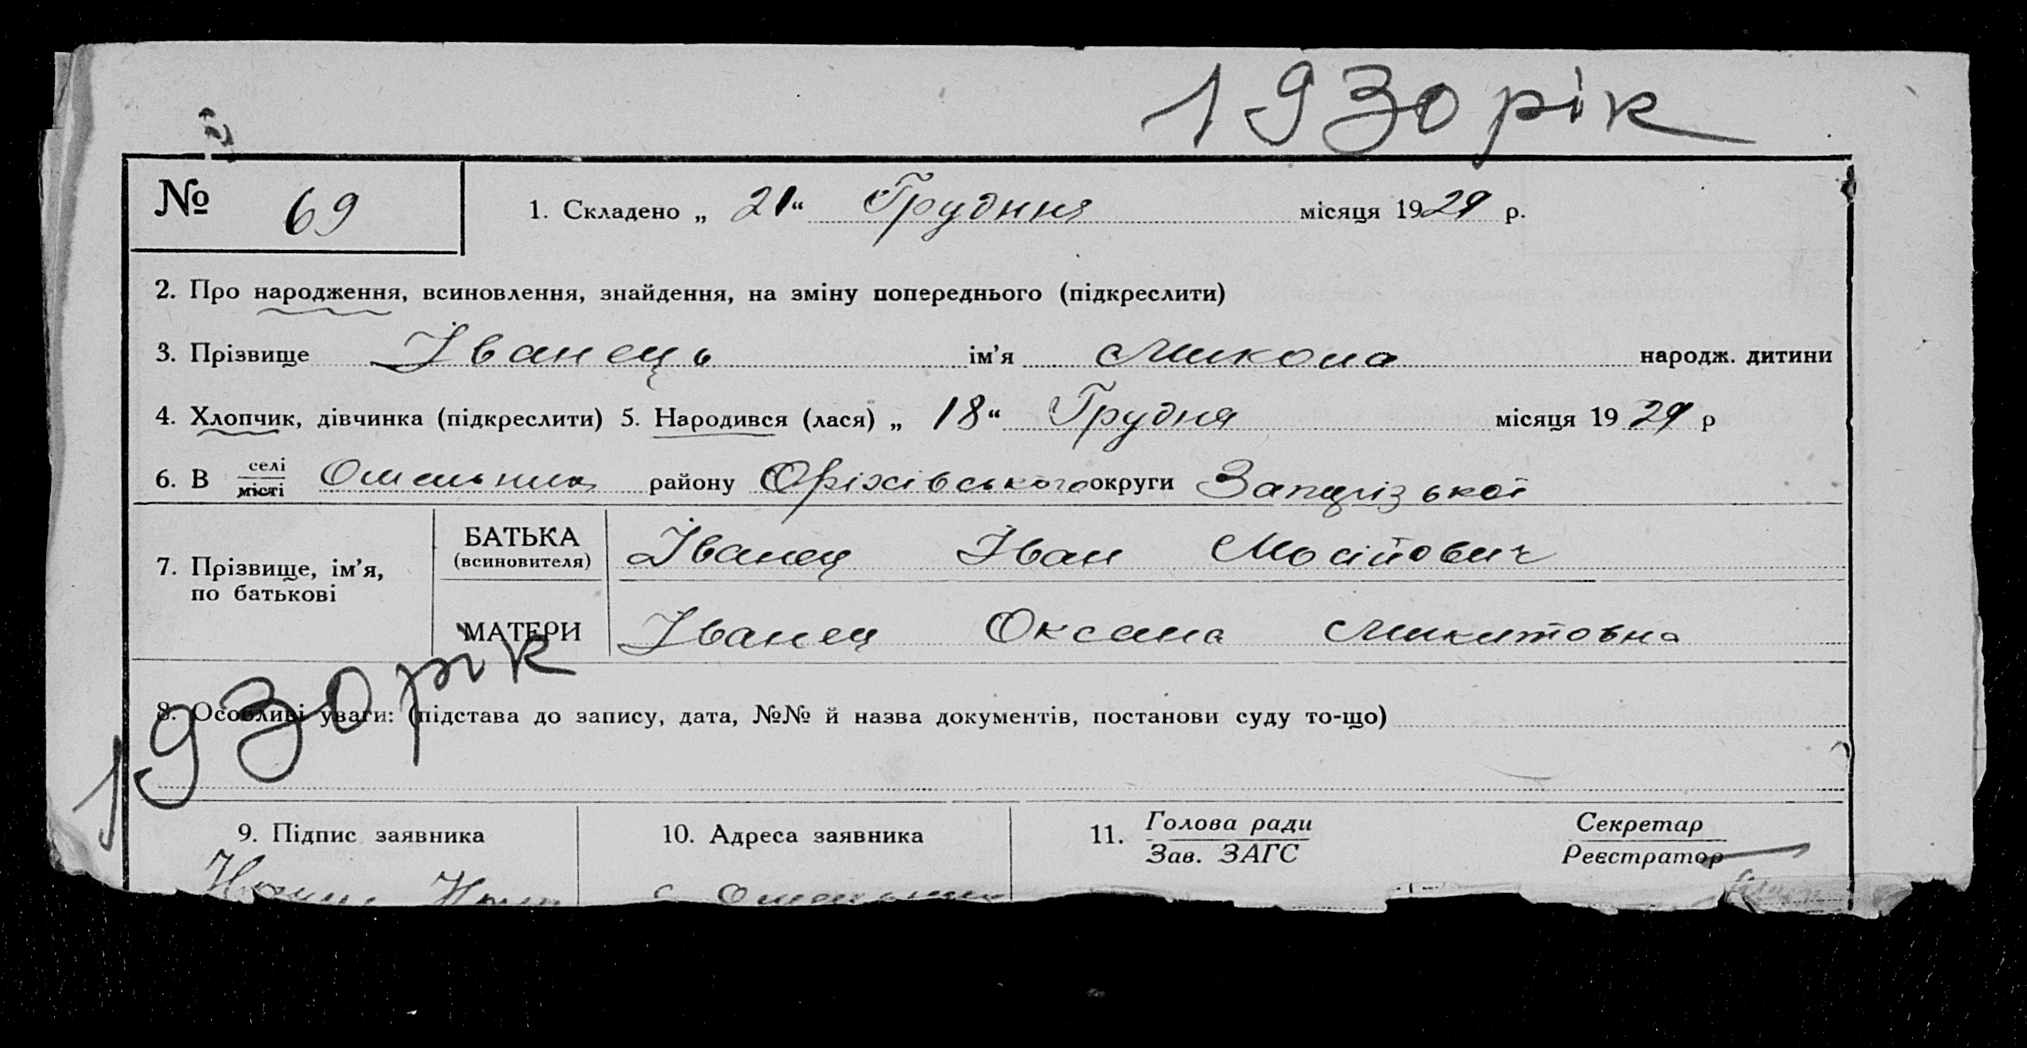 1930 рік
№ 69
1. Складено „ 21“ Грудння місяця 1929 р.
2. Про народження, всиновлення, знайдення, на зміну попереднього (підкреслити)
3. Прізвище Іванець ім’я Микола народж. дитини
4. Хлопчик, дівчинка (підкреслити) 5. Народився (лася) „ 18“ Грудня місяця 1929 р
6. В селі місті Омельник району Оріхівського округи Запорізької
7. Прізвище, ім’я, по батькові
БАТЬКА (всиновителя) Іванец Іван Мосійович
МАТЕРИ Іванец Оксана Микитовна
1930 рік
8. Особливі уваги: (підстава до запису, дата, №№ й назва документів, постанови суду то-що)
9. Підпис заявника 10. Адреса заявника 11. Голова ради Секретар
Зав. ЗАГС Реєстратор
с